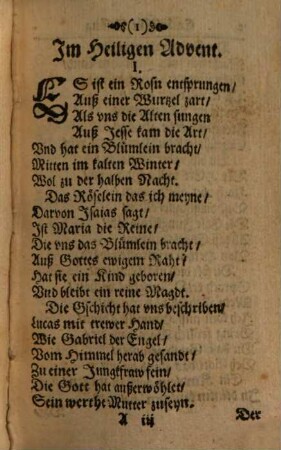 (1)
Im Heiligen Advent.
I.
ES ist ein Rosn entsprungen/
Auß einer Wurtzel zart/
Als vns die Alten sungen
Auß Jesse kam die Art/
Vnd hat ein Blümlein bracht/
Mitten im kalten Winter/
Wol zu der halben Nacht.
Das Röselein das ich meyne/
Darvon Isaias sagt/
Ist Maria die Reine/
Die vns das Blümlein bracht/
Auß Gottes ewigem Raht/
Hat sie ein Kind geboren/
Vnd bleibt ein reine Magdt.
Die Gschicht hat vns beschriben/
Lucas mit trewer Hand/
Wie Gabriel der Engel/
Vom Himmel herab gesandt/
Zu einer Jungkfraw fein/
Die Gott hat außerwöhlet/
Sein werthe Mutter zuseyn.
A iij Der